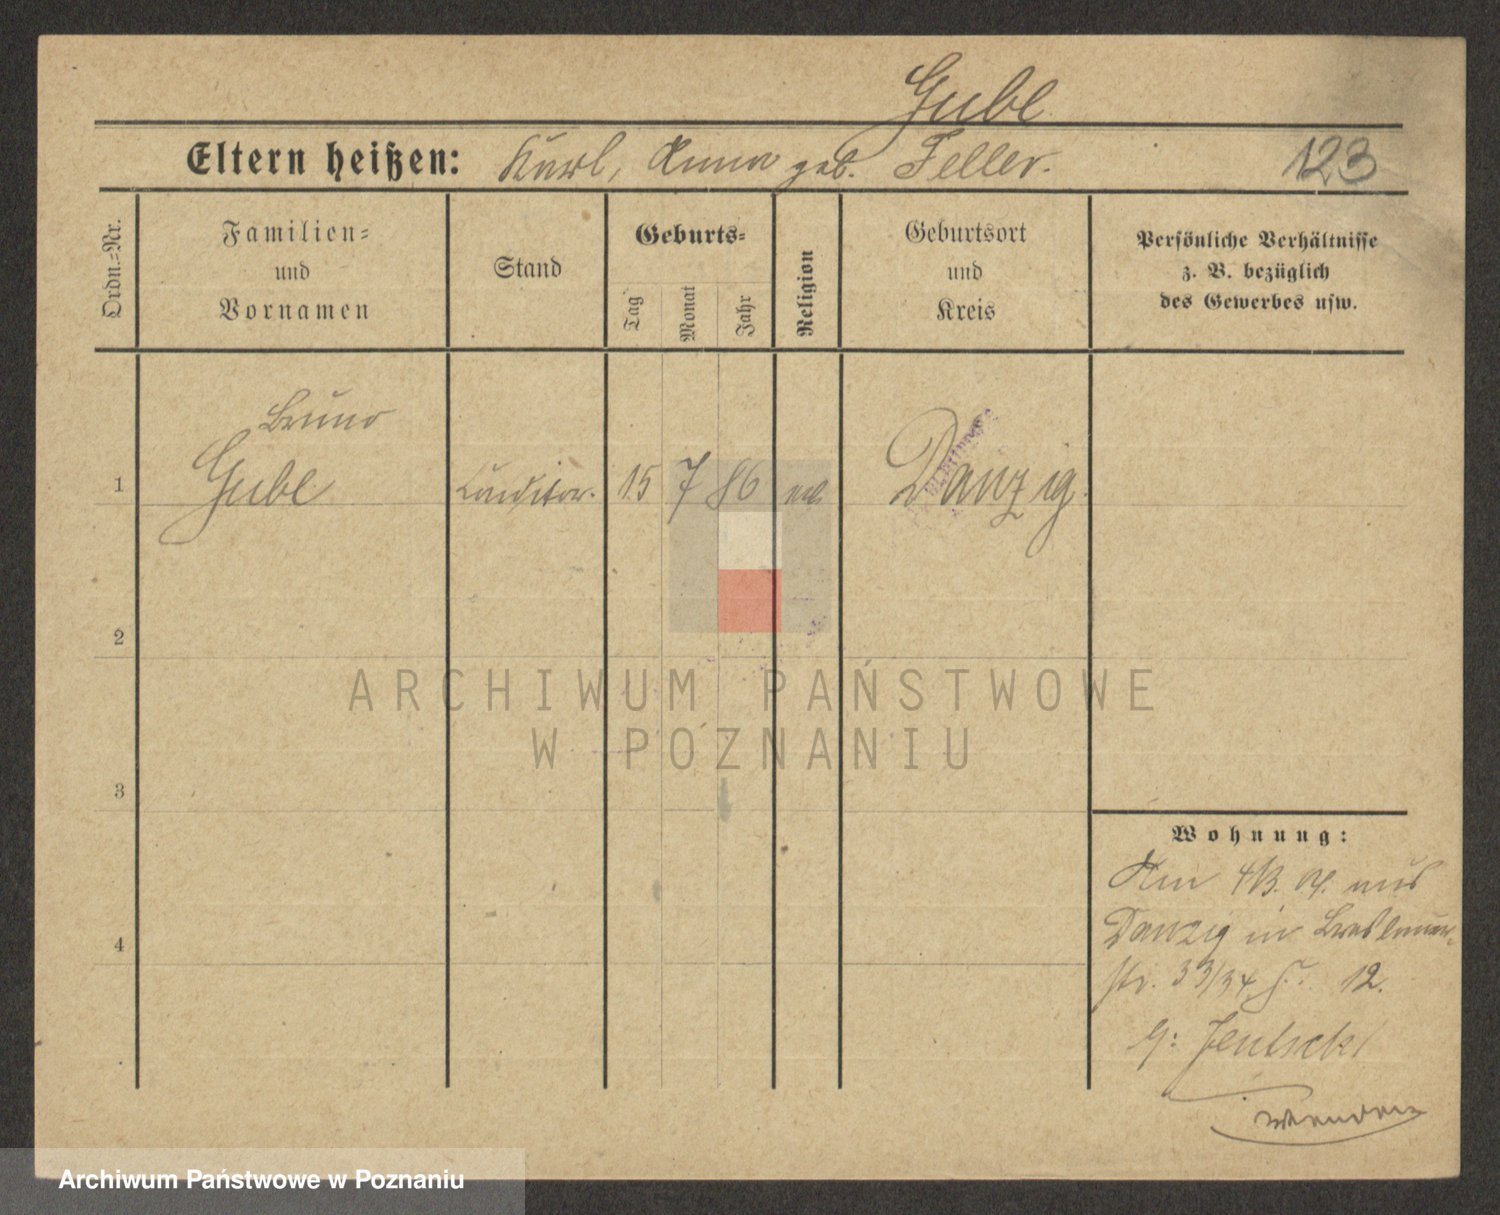 Gubl
Eltern heißen: Karl, Anna geb. Feller.
123
Ordn.=Nr.
Familien=
und
Vornamen
Stand
Geburts=
Tag
Monat
Jahr
Religion
Geburtsort
und
Kreis
Persönliche Verhältnisse
z. B. bezüglich
des Gewerbes usw.
Bruno
1 Gubl Konditor. 15 7 86 ev. Danzig.
2
3
4
ARCHIWUM PAŃSTWOWE
W POZNANIU
Wohnung:
Am 4/3. 07. aus
Danzig in Breslauer-
str. 33/34 12.
b:
wenden
Archiwum Państwowe w Poznaniu